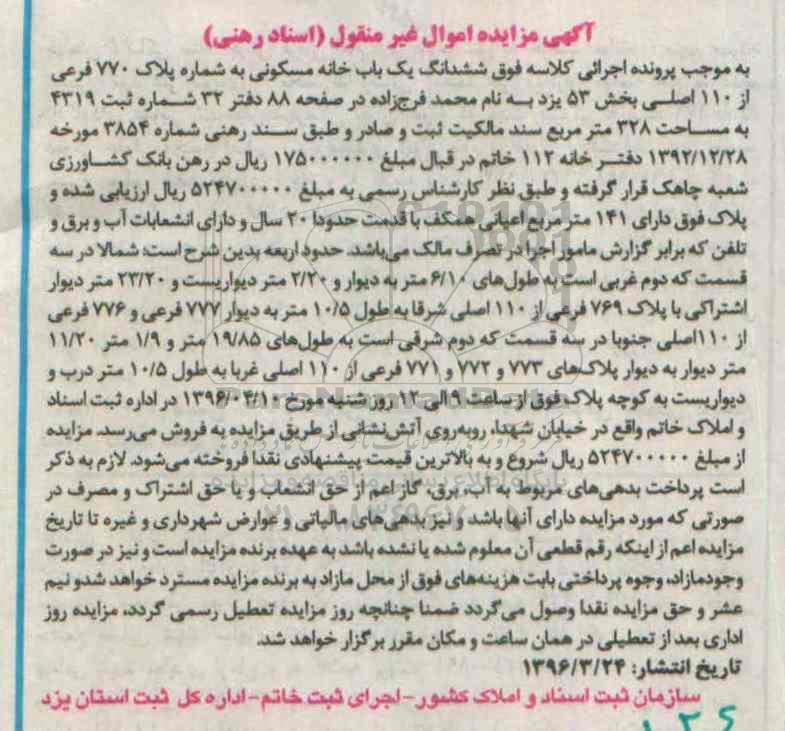 آگهی مزایده اموال غیر منقول (اسناد رهنی)
به موجب پرونده اجرائی کلاسه فوق ششدانگ یک باب خانه مسکونی به شماره پلاک ۷۷۰ فرعی
از ۱۱۰ اصلی بخش ۵۳ یزد به نام محمد فرج‌زاده در صفحه ۸۸ دفتر ۳۲ شماره ثبت ۴۳۱۹
به مساحت ۳۲۸ متر مربع سند مالکیت ثبت و صادر و طبق سند رهنی شماره ۳۸۵۴ مورخه
۱۳۹۲/۱۲/۲۸ دفتر خانه ۱۱۲ خاتم در قبال مبلغ ۱۷۵۰۰۰۰۰۰ ریال در رهن بانک کشاورزی
شعبه چاهک قرار گرفته و طبق نظر کارشناس رسمی به مبلغ ۵۲۴۷۰۰۰۰۰ ریال ارزیابی شده و
پلاک فوق دارای ۱۴۱ متر مربع اعیانی همکف با قدمت حدودا ۲۰ سال و دارای انشعابات آب و برق و
تلفن که برابر گزارش مامور اجرا در تصرف مالک می‌باشد. حدود اربعه بدین شرح است: شمالا در سه
قسمت که دوم غربی است به طول‌های ۶/۱۰ متر به دیوار و ۲/۲۰ متر دیواریست و ۲۳/۲۰ متر دیوار
اشتراکی با پلاک ۷۶۹ فرعی از ۱۱۰ اصلی شرقا به طول ۱۰/۵ متر به دیوار ۷۷۷ فرعی و ۷۷۶ فرعی
از ۱۱۰اصلی جنوبا در سه قسمت که دوم شرقی است به طول‌های ۱۹/۸۵ متر و ۱/۹ متر ۱۱/۲۰
متر دیوار به دیوار پلاک‌های ۷۷۳ و ۷۷۲ و ۷۷۱ فرعی از ۱۱۰ اصلی غربا به طول ۱۰/۵ متر درب و
دیواریست به کوچه پلاک فوق از ساعت ۹ الی ۱۲ روز شنبه مورخ ۱۳۹۶/۰۴/۱۰ در اداره ثبت اسناد
و املاک خاتم واقع در خیابان شهدا، روبه‌روی آتش‌نشانی از طریق مزایده به فروش می‌رسد. مزایده
از مبلغ ۵۲۴۷۰۰۰۰۰ ریال شروع و به بالاترین قیمت پیشنهادی نقدا فروخته می‌شود. لازم به ذکر
است پرداخت بدهی‌های مربوط به آب، برق، گاز اعم از حق انشعاب و یا حق اشتراک و مصرف در
صورتی که مورد مزایده دارای آنها باشد و نیز بدهی‌های مالیاتی و عوارض شهرداری و غیره تا تاریخ
مزایده اعم از اینکه رقم قطعی آن معلوم شده یا نشده باشد به عهده برنده مزایده است و نیز در صورت
وجودمازاد، وجوه پرداختی بابت هزینه‌های فوق از محل مازاد به برنده مزایده مسترد خواهد شدو نیم
عشر و حق مزایده نقدا وصول می‌گردد ضمنا چنانچه روز مزایده تعطیل رسمی گردد، مزایده روز
اداری بعد از تعطیلی در همان ساعت و مکان مقرر برگزار خواهد شد.
تاریخ انتشار: ۱۳۹۶/۳/۲۴
سازمان ثبت اسناد و املاک کشور-اجرای ثبت خاتم-اداره کل ثبت استان یزد